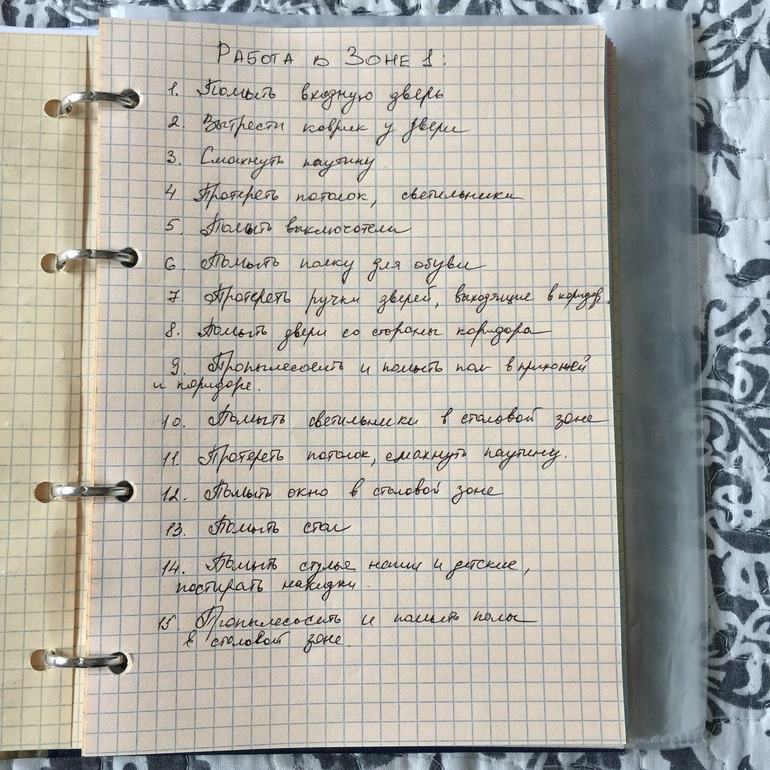 Работа в Зоне 1:
1. Помыть входную дверь
2. Вытрести коврик у двери
3. Смахнуть паутину.
4. Протереть потолок, светильники
5. Помыть выключатели
6. Помыть полку для обуви
7. Протереть ручки дверей, выходящие в коридор.
8. Помыть двери со стороны коридора
9. Пропылесосить и помыть пол в прихожей
и коридоре.
10. Помыть светильники в столовой зоне
11. Протереть потолок, смахнуть паутину.
12. Помыть окно в столовой зоне
13. Помыть стол
14. Помыть стулья наши и детские,
постирать накидки.
15. Пропылесосить и помыть полы
в столовой зоне.